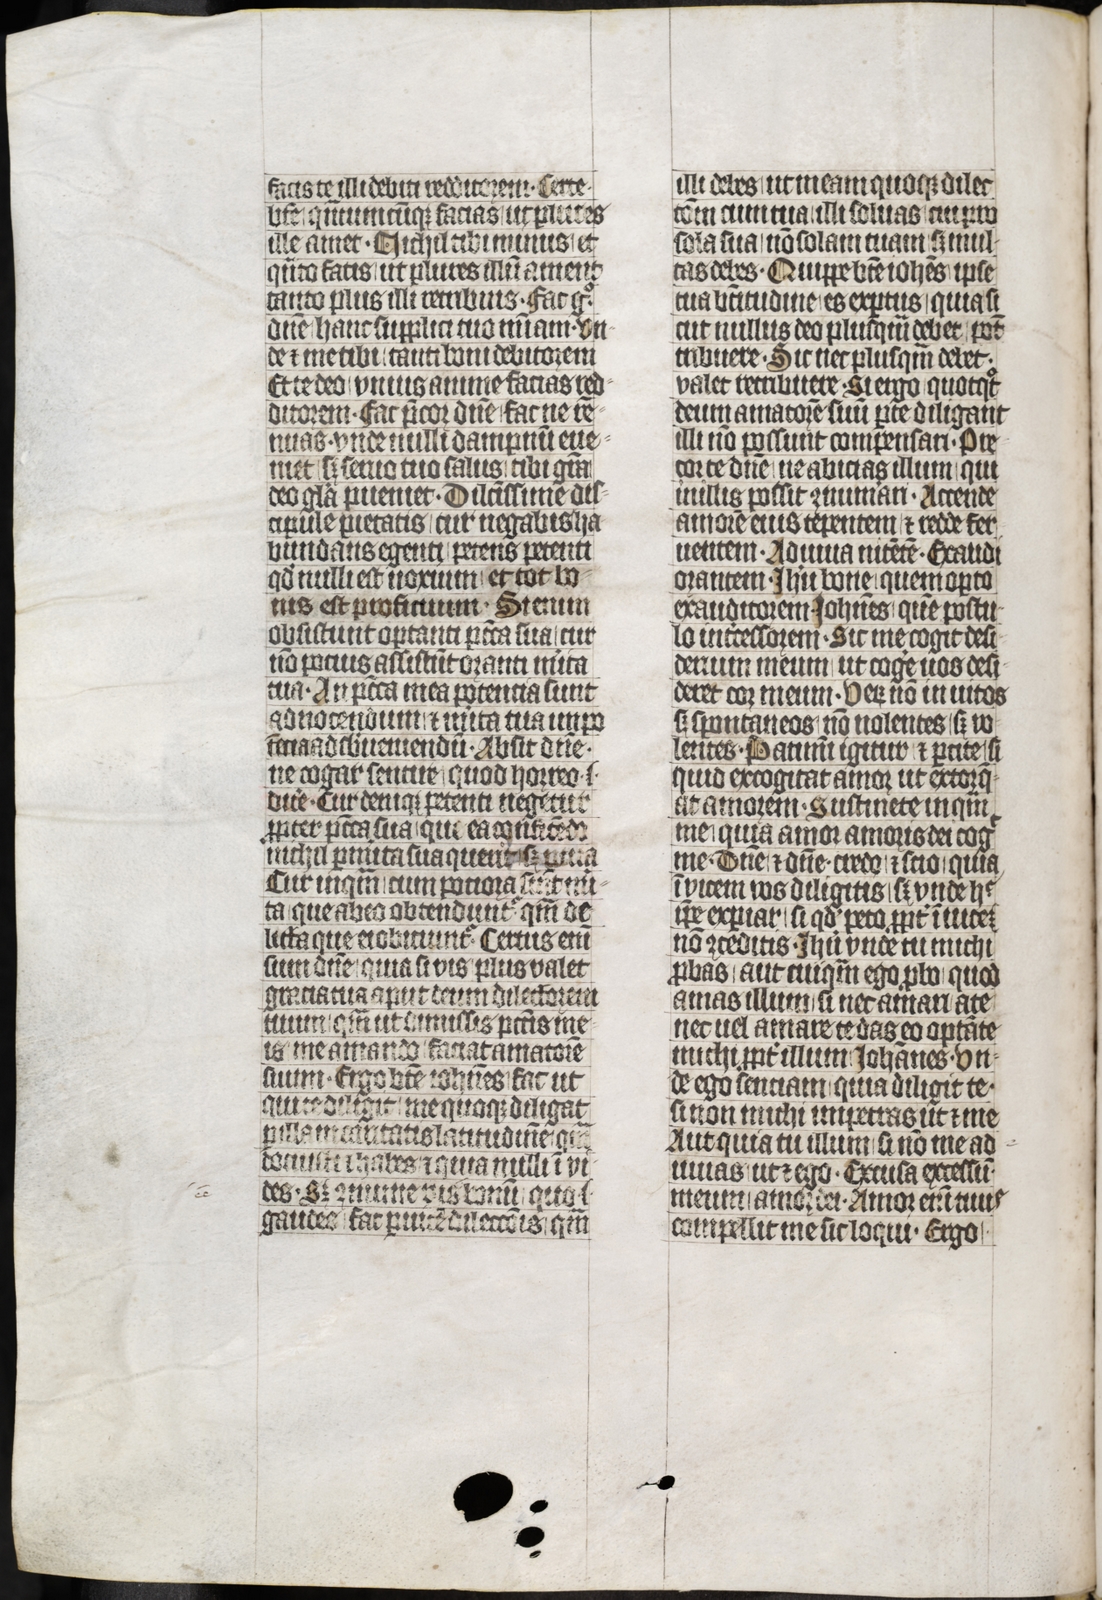 facis te illi debiti redditorem. Certe
bt̄e qm̄uncūq; facias ut plures
ille amet. Nichil tibi minus et
qn̄to facis ut plures illū ament
tanto plus illi retribuis. Fac gͦ
dn̄e hanc supplici tuo nūam. Vn-
de ⁊ me tibi tanti boni debitorem
Et te deo vnius anime facias red-
ditorem. Fac p̄cor dn̄e fac ne re-
nuas. vnde nulli dampnū eue-
niet s; seruo tuo salus tibi gr̄a
deo gl̄a ꝓueniet. Dilc̄issime dis-
cipule pietatis cur negabis ha
bundans egenti petens petenti
qd̄ nulli est noxium et tot bo-
nis est proficuum. Si enim
obsistunt optanti pc̄ca sua cur
nō potius assistūt oranti m̄ita
tua. An pc̄ca mea potencia sunt
ad nocendum ⁊ m̄ita tua inpo
tēcia ad sb̄ueniendū. Absit dn̄e.
ne cogar sentire quod horreo
dicē. Cur deniq; petenti negetur
ꝓpter pc̄ca sua qui ea confitēdo
nichil
Cur inqm̄ cum potiora sint m̄i-
ta que ab eo obtendunt qm̄ de
licta que ei obiciunt. Certus eni
sum dn̄e quia si vis plus valet
gracia tua aput deum dilectorem
tuum qm̄ ut dimissis pc̄cis me-
is me amando faciat amatorē
suum. Ergo bt̄e ioh̄nes fac ut
qui te diligit me quoq; diligat
ꝑ illam caritatis latitudinē qm̄
docuisti ⁊ habes ⁊ quia nulli ī vi-
des. S; ⁊mune vis bonū quo
gaudes fac dilecc̄ōis qm̄
illi debes ut meam quoq; dilec
cōm cum tua illi soluas cui pro
sola sua nō solam tuam s; mul-
tas debes. Quippe bt̄e ioh̄es ipse
tua bt̄itudine es exptus quia si
cut nullus deo plusqm̄ debet pōt
tribuere. Sic nec plusqm̄ debet.
valet retribuere. Si ergo quotqͦt
deum amatorē suū ꝑte diligant
illi nō possunt compensari. Pre-
cor te dn̄e ne abicias illum qui
in illis possit ꝯnumari. Accende
amorē eius tepentem ⁊ redde fer
uentem. Adiuua nitētē. Exaudi
orantem. Ih̄u bone quem opto
exauditorem Joh̄nes quē postu-
lo int̄cessorem. Sic me cogit desi-
derium meum ut coḡe uos desi-
deret cor meum. Veꝝ nō inuitos
s; spontaneos nō nolentes s; vo-
lentes. Patimī igitur ⁊ ꝑcite si
quid excogitat amor ut extorq̄-
at amorem. Sustinete inqm̄
me quia amor amoris dei cogͭ
me. Dn̄e ⁊ dn̄e credo ⁊ scio quia
ī vicem vos diligitis s; vnde hͨ
ip̄e expiar si qd̄ peto ꝓpt̄ īuicē
nō ꝯceditis. Ih̄u vnde tu michi
ꝓbas aut cuiqm̄ ego ꝓbo quod
amas illum si nec amari a te
nec uel amare te das eo optāte
michi ꝓpt̄ illum Joh̄anes. Vn-
de ego senciam quia diligit te.
si non michi impetras ut ⁊ me
Aut quia tu illum si nō me ad
iuuas ut ⁊ ego. Excusa excessū
meum amor dei. Amor eni tuus
compellit me sic loqui. Ergo